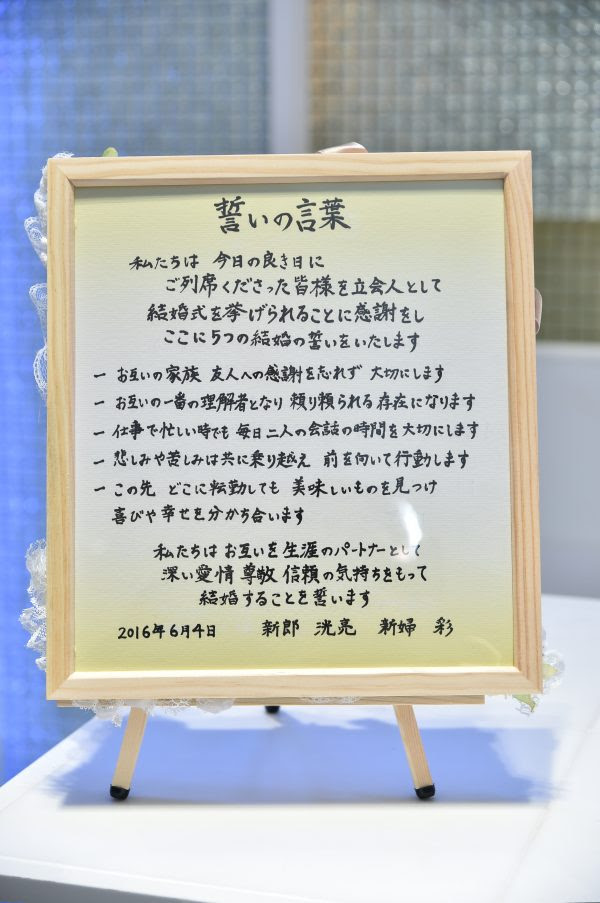 誓いの言葉
私たちは 今日の良き日に
ご列席くださった皆様を立会人として
結婚式を挙げられることに感謝をし
ここに5つの結婚の誓いをいたします
一 お互いの家族 友人への感謝を忘れず 大切にします
一 お互いの一番の理解者となり 頼り頼られる存在になります
一 仕事で忙しい時でも 毎日二人の会話の時間を大切にします
一 悲しみや苦しみは共に乗り越え 前を向いて行動します
一 この先 どこに転勤しても 美味しいものを見つけ
喜びや幸せを分かち合います
私たちは お互いを生涯のパートナーとして
深い愛情 尊敬 信頼の気持ちをもって
結婚することを誓います
2016年6月4日 新郎 洸亮 新婦 彩